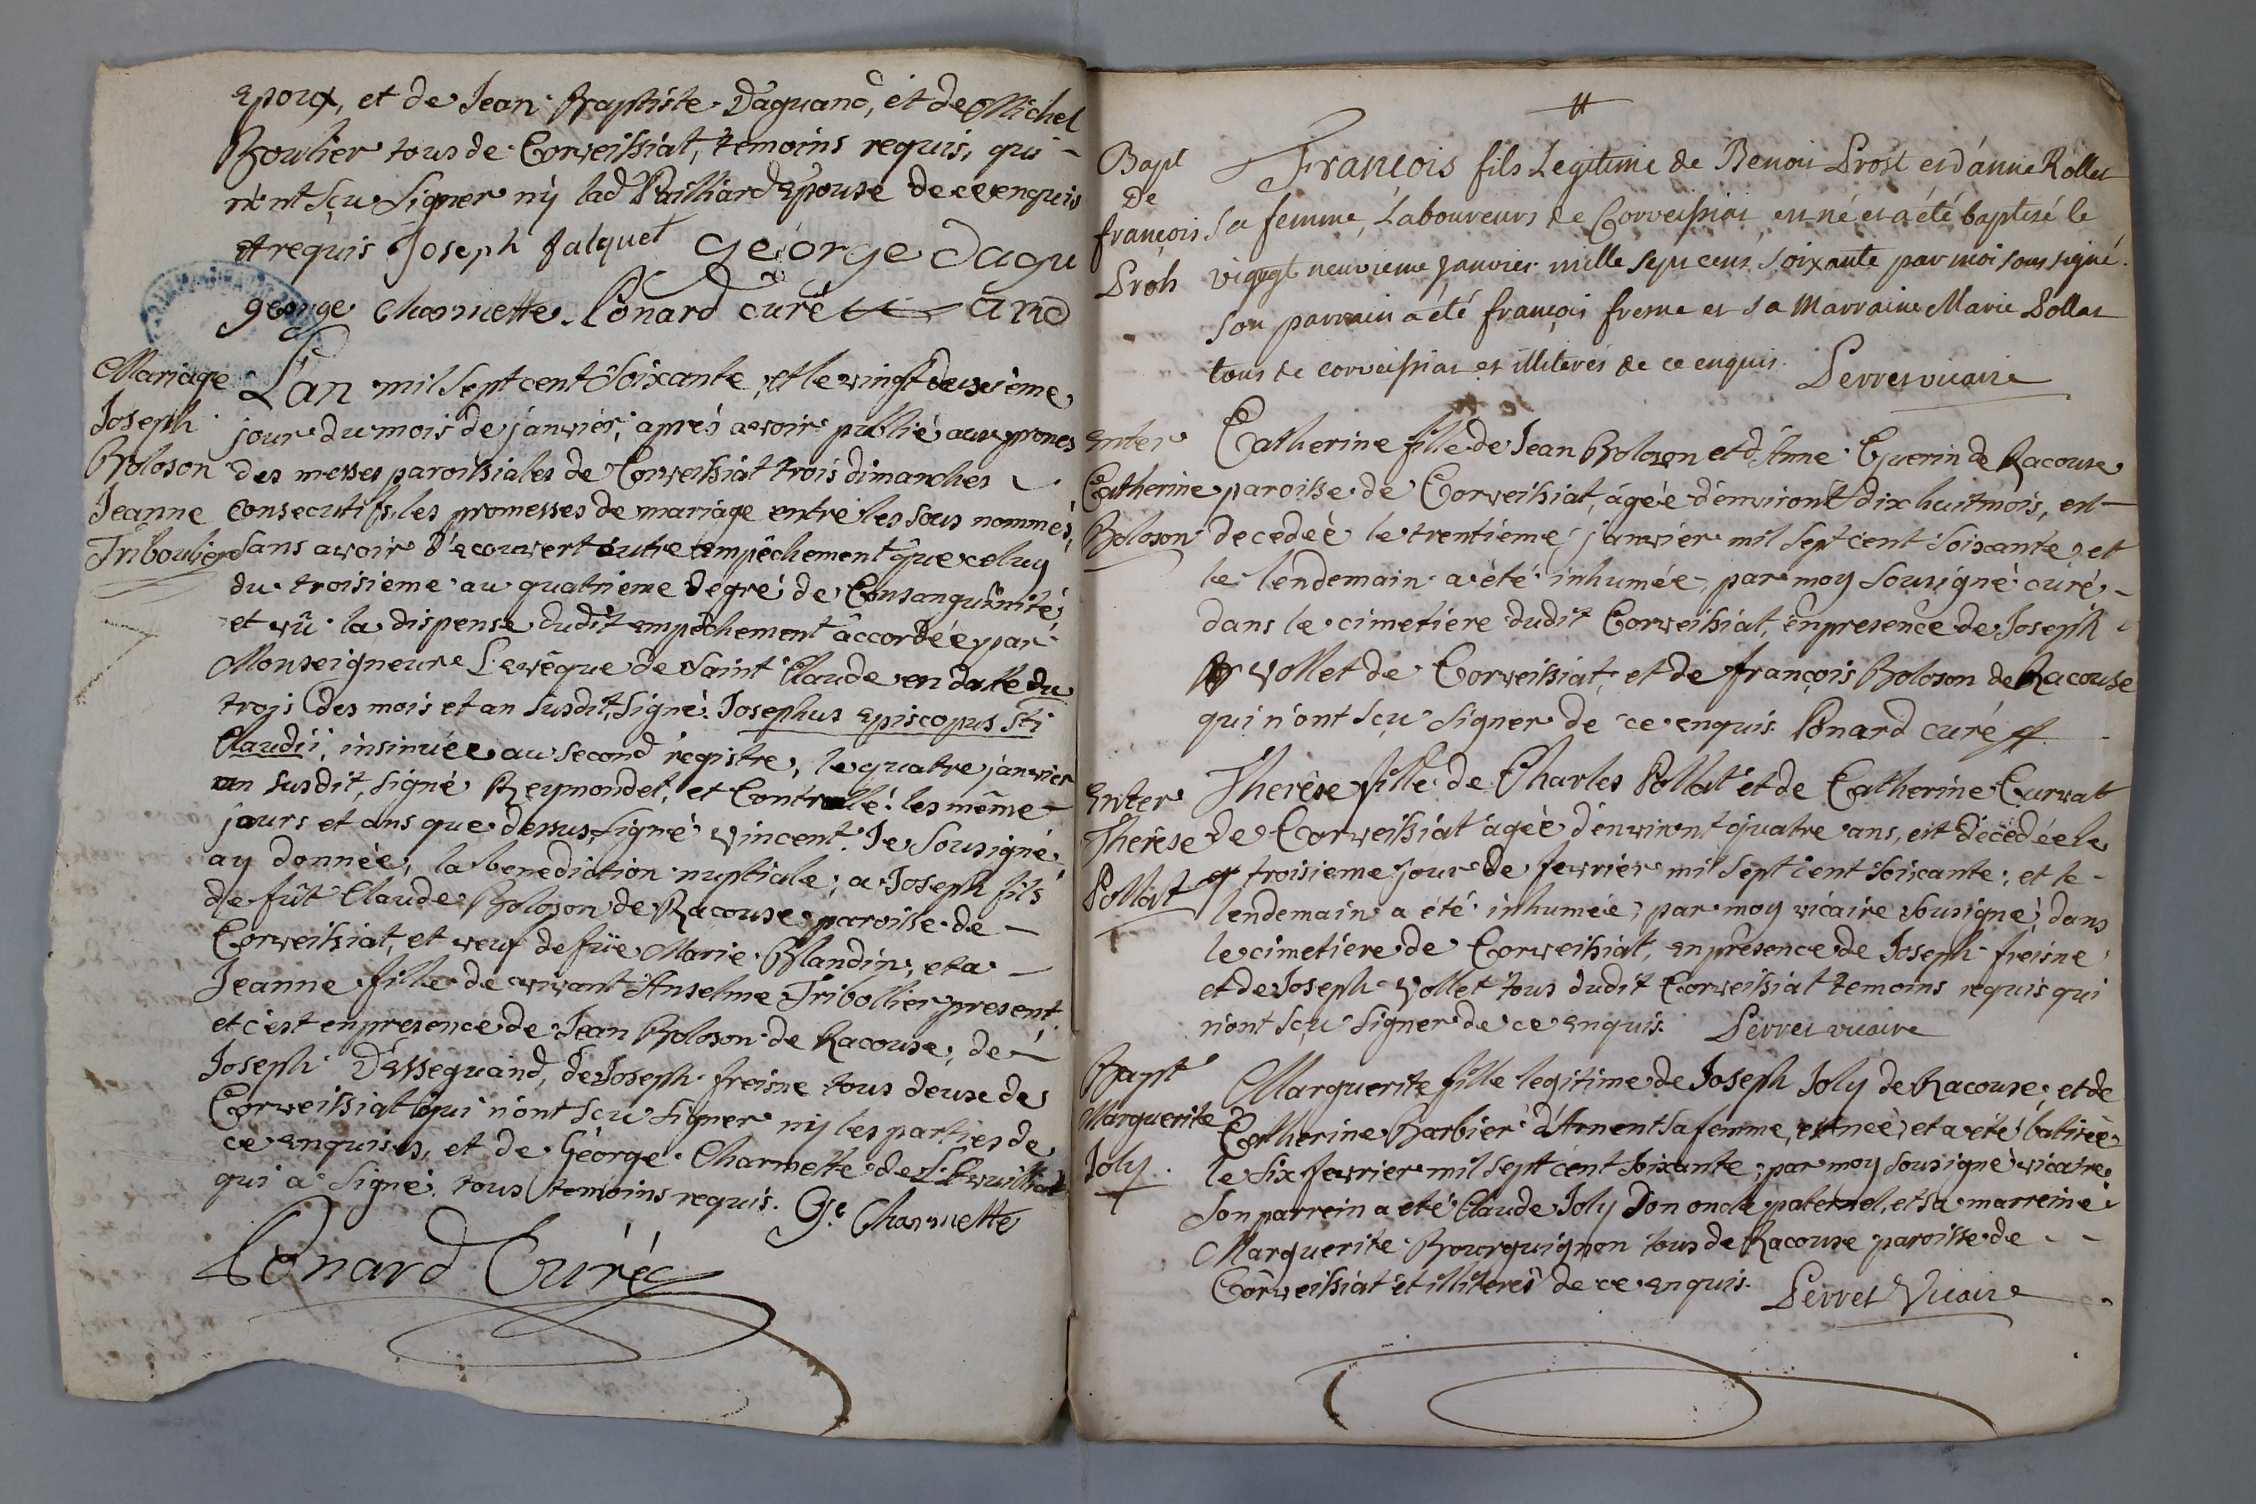 Epoux, et de Jean Baptiste Daguand, et de Michel
Bouhier tous de Corveissiat, temoins requis, qui
n'ont sçu signer ny lad Pailliard Epouse de ce enquis
et requis Joseph Jalquet george dagu
george charmette Ponard curé and
Mariage
Joseph
Boloson
Jeanne
Triboulier
L'an mil sept cent soixante, et le vingt deuxième
jour du mois de janvier, aprés avoir publié aux prones
des messes paroissiales de Corveissiat trois dimanches
consecutifs, les promesses de mariage entre les sous nommés,
sans avoir découvert autre empêchement que celuy
du troisieme au quatrieme degré de Consanguinité,
et vû la dispense dudit empêchement âccordée par
Monseigneur L'evêque de Saint Claude en datte du
trois des mois et an susdit, signé Josephus Episcopus Sti
Claudii, insinuée au second registre, le quatre janvier
an susdit, signé Reymondet, et Controllé les même
jours et ans que dessus, signé Vincent. Je sousigné,
ay donnée, la benediction nuptiale, a Joseph fils
de fût Claude Boloson de Racouse paroisse de
Corveissiat, et veuf de füe Marie Blandin, et a
Jeanne fille de vivant Anselme Tribollier present
et c'est en presence de Jean Boloson de Racouse, de
Joseph Desseguand, de Joseph freisne tous deux de
Corveissiat qui n'ont sçu signer ny les parties de
ce enquises, et de George Charmette de
qui a signé, tous temoins requis. Ge Charmette
Ponard Curé
Bapt
De
françois
Prost
François fils Legitime de Benoit Prost et d'anne Rollet
sa femme, Laboureurs de Corveissiat est né et a été baptisé le
vingt neuvieme janvier mille sept cens soixante par moi soussigné.
son parrain a été françois fresne et sa Marraine Marie Pollat
tous de corveissiat et illiterés de ce enquis. Perret vicaire
Enter
Catherine
Boloson
Catherine fille de Jean Boloson et d'Anne Guerin de Racouse
paroisse de Corveissiat, âgée d'environt dix huit mois, est
decedeé le trentiéme janvier mil sept cent soixante, et
le lendemain a été inhumée, par moy sousigné curé
dans le cimetiere dudit Corveissiat, en presence de Joseph
Vollet de Corveissiat, et de françois Boloson de Racouse
qui n'ont sçu signer de ce enquis. Ponard curé
Enter
Therése
Pollat
Therése fille de Charles Pollat et de Catherine Curvat
de Corveissiat agée d'environt quatre ans, est décedée le
troisieme jour de fevrier mil sept cent soixante, et le
lendemain a été inhumée, par moy vicaire sousigné, dans
le cimetiere de Corveissiat, en presence de Joseph freisne
et de Joseph Vollet tous dudit Corveissiat temoins requis qui
n'ont sçu signer de ce enquis. Perret vicaire
Bapt
Marguerite
Joly.
Marguerite fille legitime de Joseph Joly de Racouse, et de
Catherine Barbier d'Arnent sa femme, est neé, et a eté batiseé
le six fevrier mil sept cent soixante, par moy sousigné vicaire
Son parrein a eté Claude Joly son oncle paternel, et sa marreine
Marguerite Bourguignon tous de Racouse paroisse de
Corveissiat et illiterés de ce enquis. Perret Vicaire